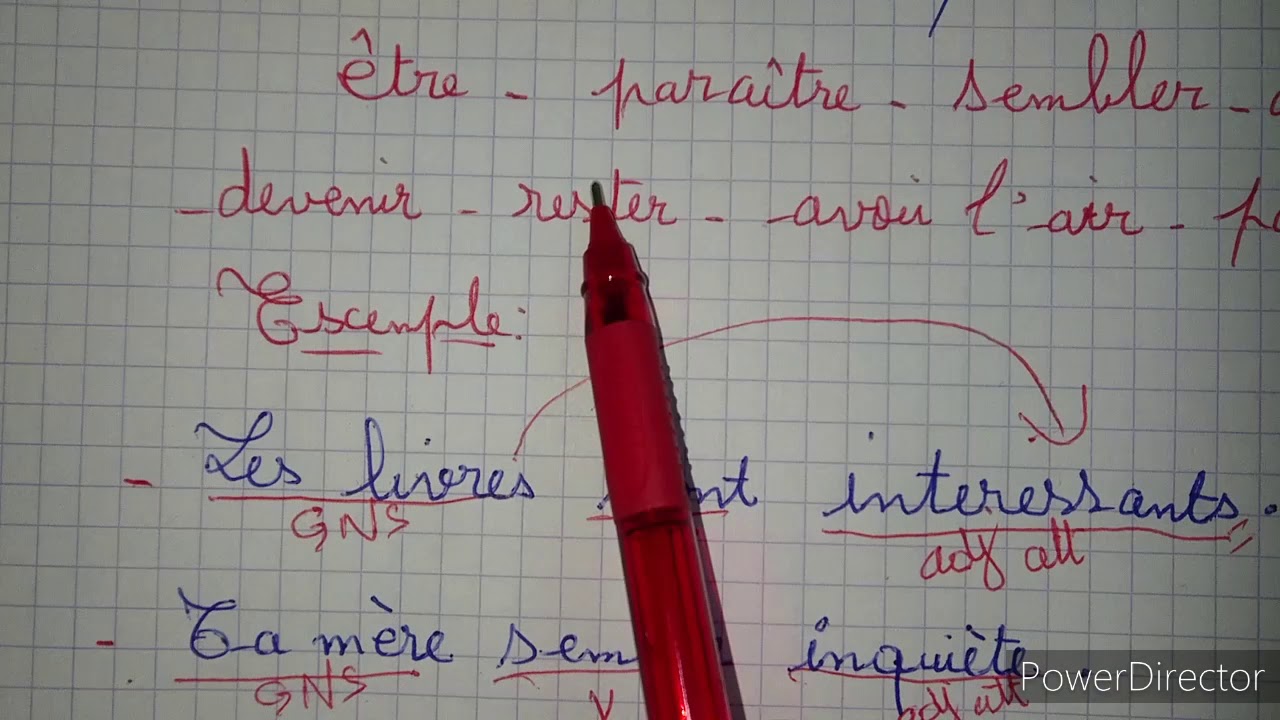 être - paraître - sembler -
- devenir - rester - avoir l'air -
Exemple:
- Les livres interessants.
GNS adj att
- Ta mère inquiète
GNS V adj att
PowerDirector